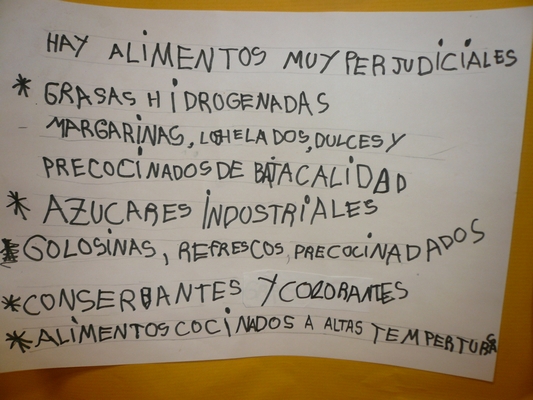 HAY ALIMENTOS MUY PERJUDICIALES
* GRASAS HIDROGENADAS
MARGARINAS, LOHELADOS, DULCES Y
PRECOCINADOS DE BAJA CALIDAD
* AZUCARES INDUSTRIALES
* GOLOSINAS, REFRESCOS, PRECOCINADADOS
* CONSERVANTES Y COLORANTES
* ALIMENTOS COCINADOS A ALTAS TEMPERTURAS